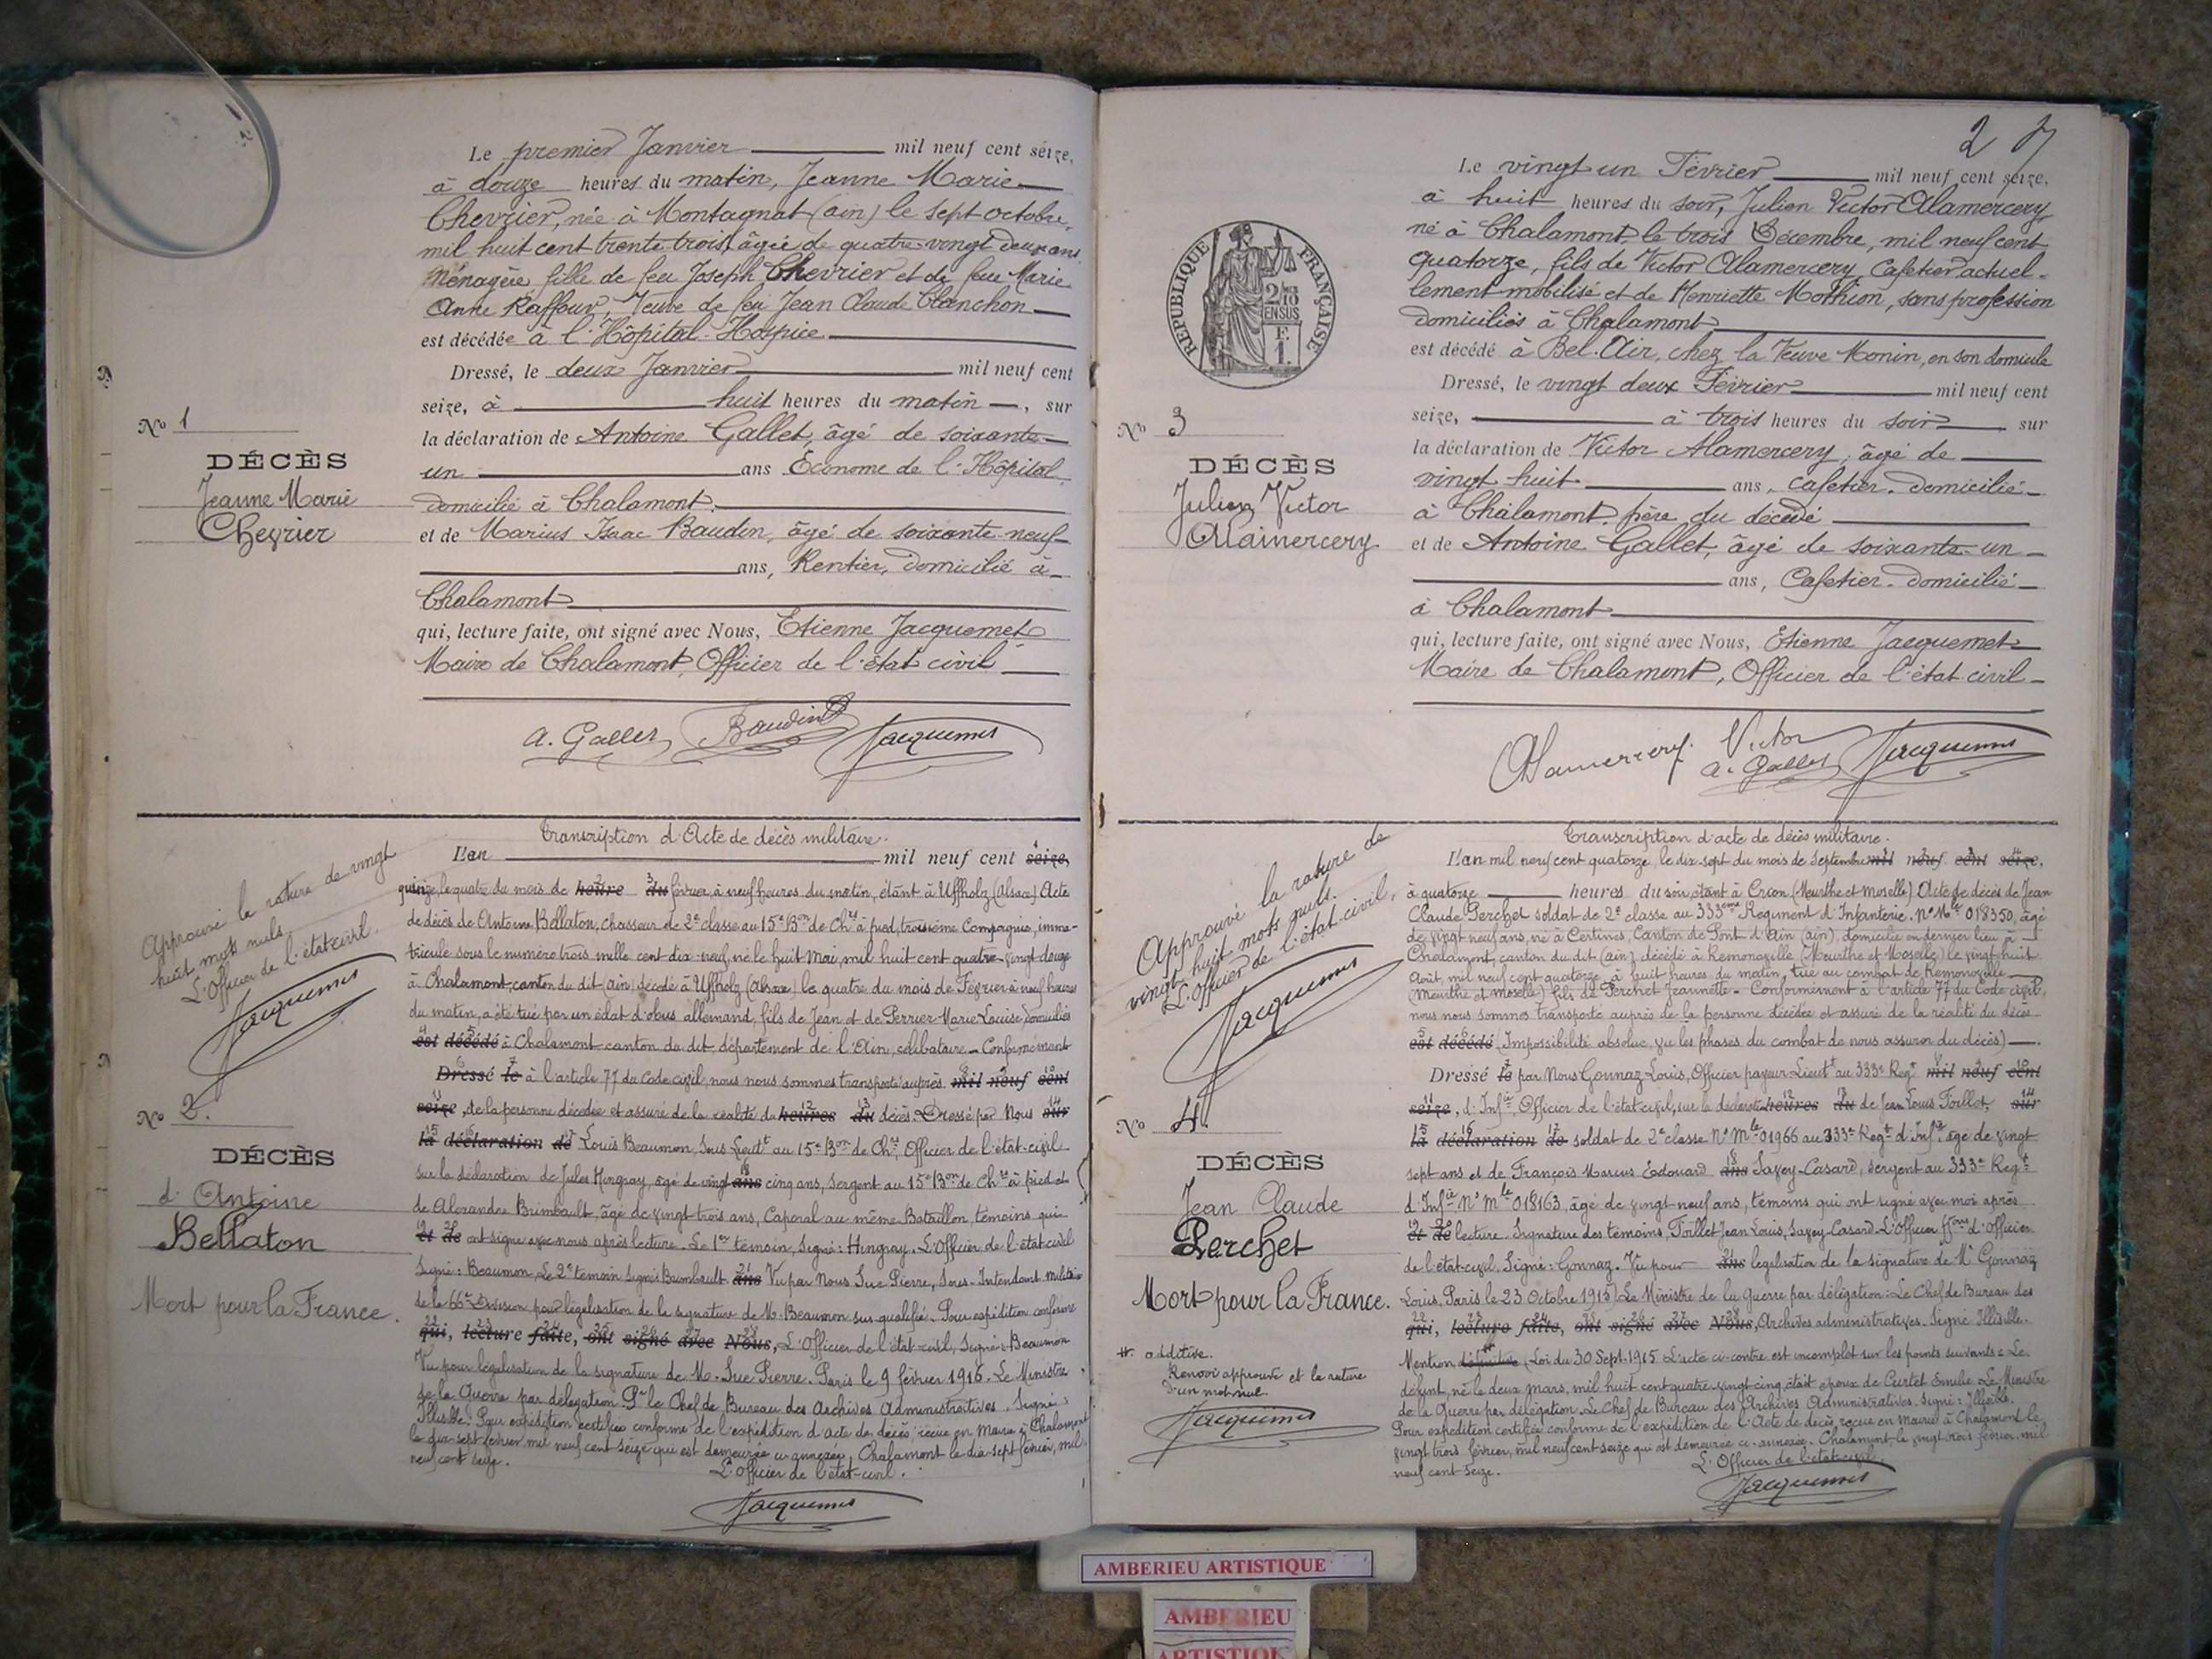 Le premier Janvier mil neuf cent seize,
à douze heures du matin, Jeanne Marie
Chevrier, née à Montagnat (ain) le sept octobre,
mil huit cent trente-trois, âgée de quatre-vingt deux ans
Ménagère, fille de feu Joseph Chevrier et de feue Marie
Anne Raffour, Veuve de feu Jean Claude Clanchon
est décédée à l'Hôpital-Hospice
Dressé, le deux Janvier mil neuf cent
seize, à huit heures du matin, sur
la déclaration de Antoine Gallet, âgé de soixante
un ans Econome de l'Hôpital,
domicilié à Chalamont.
et de Marius Isaac Baudin, âgé de soixante-neuf
ans, Rentier, domicilié à
Chalamont
qui, lecture faite, ont signé avec Nous, Etienne Jacquemet
Maire de Chalamont, Officier de l'état civil
a. Gallet Baudin Jacquemet
No 1
DÉCÈS
Jeanne Marie
Chevrier
Transcription d'Acte de décès militaire.
L'an mil neuf cent seize,
quinze, le quatre du mois de heure du février, à neuf heures du matin, étant à Uffholz (Alsace) Acte
de décès de Antoine Bellaton, Chasseur de 2e classe au 15e Bon de Chrs à pied, troisième Compagnie, imma-
triculé sous le numéro trois mille cent dix-neuf, né le huit Mai, mil huit cent quatre-vingt douze
à Chalamont canton du dit (ain) décédé à Uffholz (Alsace) le quatre du mois de Février à neuf heures
du matin, a été tué par un éclat d'obus allemand, fils de Jean et de Perrier Marie Louise, domiciliés
est décédé à Chalamont canton du dit, département de l'Ain, célibataire - Conformément
Dressé le à l'article 77 du Code civil, nous nous sommes transporté auprès mil neuf cent
seize, de la personne décédée et assuré de la réalité du heures du décès Dressé par Nous sur
la déclaration de Louis Beaumon, Sous Lieutt au 15e Bon de Chrs, Officier de l'état-civil
sur la déclaration de Jules Hingray, âgé de vingt ans cinq ans, Sergent au 15e Bon de Chrs à pied et
de Alexandre Brimbault, âgé de vingt-trois ans, Caporal au même Bataillon, témoins qui
et de ont signé avec nous après lecture. Le 1er témoin, Signé: Hingray. L'Officier de l'état civil
Signé: Beaumon, Le 2e témoin signé: Brimbault ans Vu par Nous Suc Pierre, Sous-Intendant militaire
de la 66e Division pour légalisation de la signature de M. Beaumon sus qualifié. Pour expédition conforme
qui, lecture faite, ont signé avec Nous, L'Officier de l'état-civil, Signé: Beaumon
Vu pour légalisation de la signature de M. Suc Pierre. Paris le 9 février 1916. Le Ministre
de la Guerre par délégation Pr le Chef de Bureau des Archives Administratives, Signé:
Illisible. Pour expédition certifiée conforme de l'expédition d'acte de décès, reçue en Mairie à Chalamont
le dix-sept février mil neuf cent seize qui est demeurée ci annexée, Chalamont le dix-sept février, mil
neuf cent seize.
L'Officier de l'état-civil.
Jacquemet
Approuvé la rature de vingt
huit mots nuls.
L'Officier de l'état civil.
Jacquemet
No 2.
DÉCÈS
d'Antoine
Bellaton
Mort pour la France.
2
Le vingt un Février mil neuf cent seize,
à huit heures du soir, Julien Victor Alamercery
né à Chalamont, le trois Décembre, mil neuf cent
quatorze, fils de Victor Alamercery, Cafetier actuel-
lement mobilisé et de Henriette Mothion, sans profession
domiciliés à Chalamont
est décédé à Bel-Air, chez la Veuve Monin, en son domicile
Dressé, le vingt deux Février mil neuf cent
seize, à trois heures du soir sur
la déclaration de Victor Alamercery, âgé de
vingt huit ans, cafetier, domicilié
à Chalamont, père du décédé
et de Antoine Gallet, âgé de soixante-un
ans, Cafetier, domicilié
à Chalamont
qui, lecture faite, ont signé avec Nous, Etienne Jacquemet
Maire de Chalamont, Officier de l'état-civil
Alamercery Victor
a. Gallet Jacquemet
RÉPUBLIQUE FRANÇAISE
2/10
EN SUS
F.
1.
No 3
DÉCÈS
Julien Victor
Alamercery
Transcription d'acte de décès militaire.
L'an mil neuf cent quatorze, le dix-sept du mois de Septembre mil neuf cent seize,
à quatorze heures du soir, étant à Crion (Meurthe et Moselle) Acte de décès de Jean
Claude Perchet soldat de 2e classe au 333eme Régiment d'Infanterie. No Mle 018350, âgé
de vingt neuf ans, né à Certines, Canton de Pont d'Ain (ain), domicilié en dernier lieu à
Chalamont, canton du dit (ain) décédé à Remonoville (Meurthe et Moselle) le vingt-huit
Août, mil neuf cent quatorze, à huit heures du matin, tué au combat de Remonoville
(Meurthe et Moselle) fils de Perchet Jeannette - Conformément à l'article 77 du Code civil,
nous nous sommes transporté auprès de la personne décédée et assuré de la réalité du décès
est décédé (Impossibilité absolue, vu les phases du combat de nous assurer du décès)
Dressé le par Nous Gonnaz Louis, Officier payeur Lieutt au 333e Regt mil neuf cent
seize, d'Infie, Officier de l'état-civil, sur la déclaration heures du de Jean Louis Foillet, sur
la déclaration de soldat de 2e classe No Mle 01966 au 333e Regt d'Infie âgé de vingt
sept ans et de François Marcus Edouard ans Savey-Casard, sergent au 333e Regt
d'Infie No Mle 018163, âgé de vingt-neuf ans, témoins qui ont signé avec moi après
et de lecture. Signature des témoins, Foillet Jean Louis, Savey-Casard. L'Officier ffons d'Officier
de l'état-civil. Signé: Gonnaz. Vu pour ans légalisation de la signature de Mr Gonnaz
Louis, Paris le 23 Octobre 1915) Le Ministre de la Guerre par délégation: Le Chef de Bureau des
qui, lecture faite, ont signé avec Nous, Archives administratives. Signé Illisible.
Mention définitive, Loi du 30 Sept. 1915 L'acte ci-contre est incomplet sur les points suivants: Le
défunt, né le deux mars, mil huit cent quatre-vingt cinq, était époux de Curtet Emilie Le Ministre
de la Guerre par délégation Le Chef de Bureau des Archives Administratives. Signé: Illisible.
Pour expédition certifiée conforme de l'expédition de l'Acte de décès, reçue en Mairie à Chalamont le
vingt trois février, mil neuf cent seize qui est demeurée ci-annexée. Chalamont, le vingt trois février, mil
neuf cent seize.
L'Officier de l'état civil.
Jacquemet
Approuvé la rature de
vingt huit mots nuls.
L'Officier de l'état civil,
Jacquemet
No 4
DÉCÈS
Jean Claude
Perchet
Mort pour la France.
# additive.
Renvoi approuvé et la rature
d'un mot nul.
Jacquemet
AMBERIEU ARTISTIQUE
AMBERIEU
ARTISTIQUE